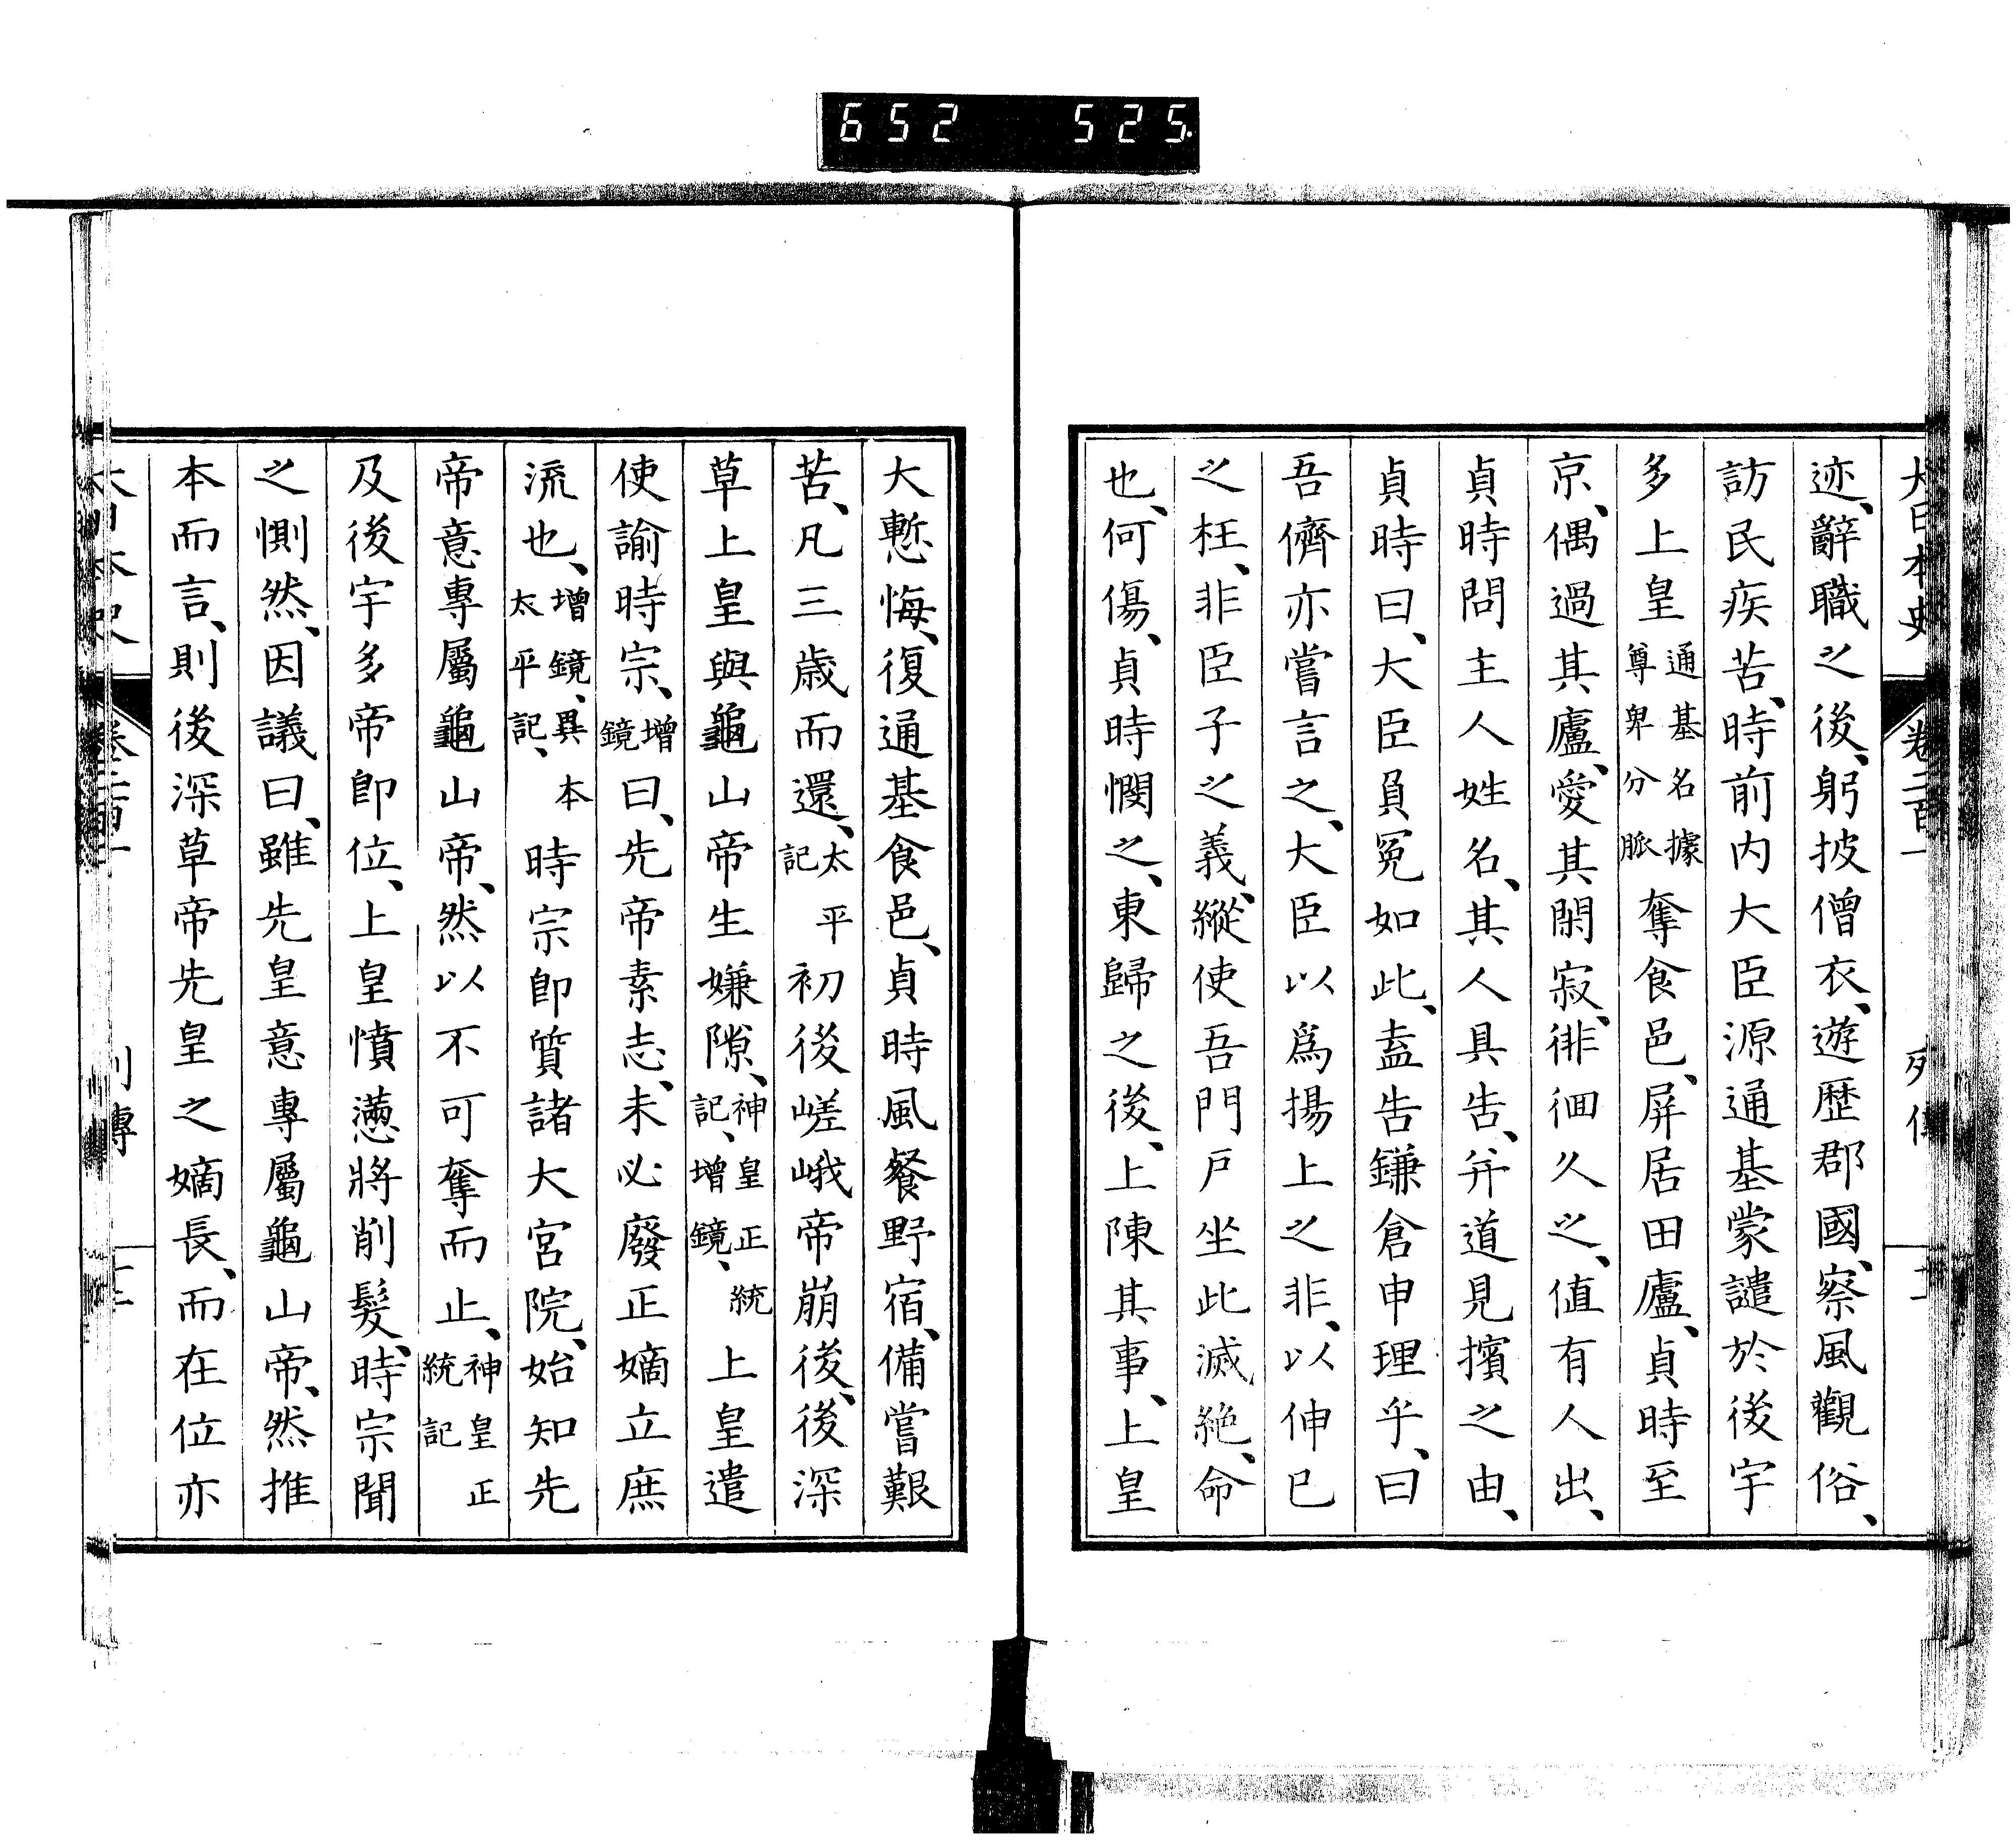 652 525
大日本史 卷二百一 列傳
迹、辭職之後、躬披僧衣、遊歷郡國、察風觀俗、
訪民疾苦、時前内大臣源通基蒙譴於後宇
多上皇通基名據尊卑分脈奪食邑、屏居田廬、貞時至
京、偶過其廬、愛其閑寂、徘徊久之、値有人出、
貞時問主人姓名、其人具告、幷道見擯之由、
貞時曰、大臣負冤如此、盍告鎌倉申理乎、曰
吾儕亦嘗言之、大臣以爲揚上之非、以伸已
之枉、非臣子之義、縱使吾門戸坐此滅絶、命
也、何傷、貞時憫之、東歸之後、上陳其事、上皇
大慙悔、復通基食邑、貞時風餐野宿、備嘗艱
苦、凡三歳而還、太平記初後嵯峨帝崩後、後深
草上皇與龜山帝生嫌隙、神皇正統記、增鏡、上皇遣
使諭時宗、增鏡曰、先帝素志、未必廢正嫡立庶
流也、增鏡、異本太平記、時宗卽質諸大宮院、始知先
帝意專屬龜山帝、然以不可奪而止、神皇正統記
及後宇多帝卽位、上皇憤懣將削髮、時宗聞
之惻然、因議曰、雖先皇意專屬龜山帝、然推
本而言、則後深草帝先皇之嫡長、而在位亦
大日本史 卷二百一 列傳